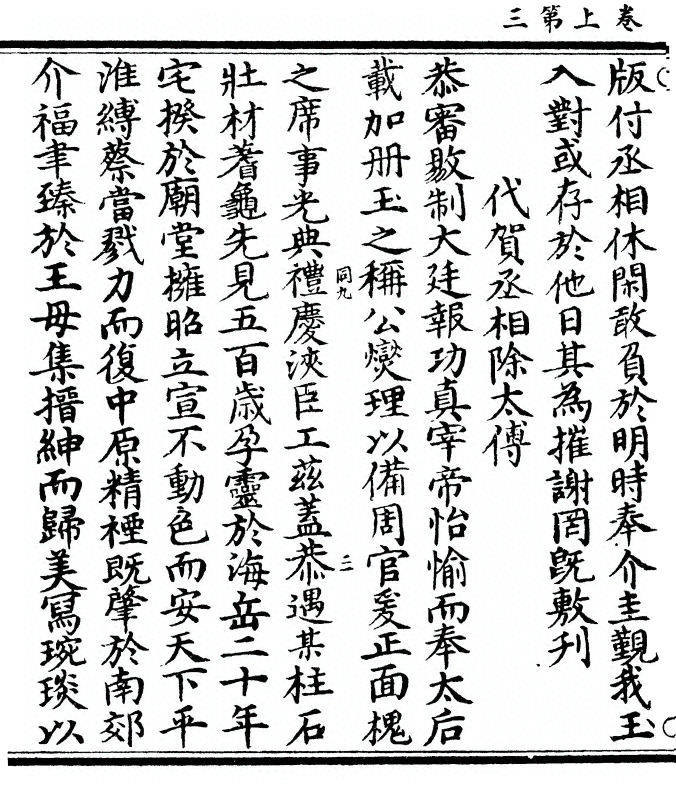 卷上第三
版付丞相休閑敢負於明時奉介圭覲我王
入對或存於他日其為摧謝罔既敷刋
代賀丞相除太傅
恭審敭制大廷報功真宰帝怡愉而奉太后
載加册玉之稱公爕理以備周官爰正面槐
之席事光典禮慶浹臣工茲蓋恭遇某柱石
同九
二
壯材蓍龜先見五百歲孕靈於海岳二十年
宅揆於廟堂擁昭立宣不動色而安天下平
淮縛蔡當戮力而復中原精禋既肇於南郊
介福聿臻於王母集搢紳而歸美寫琬琰以